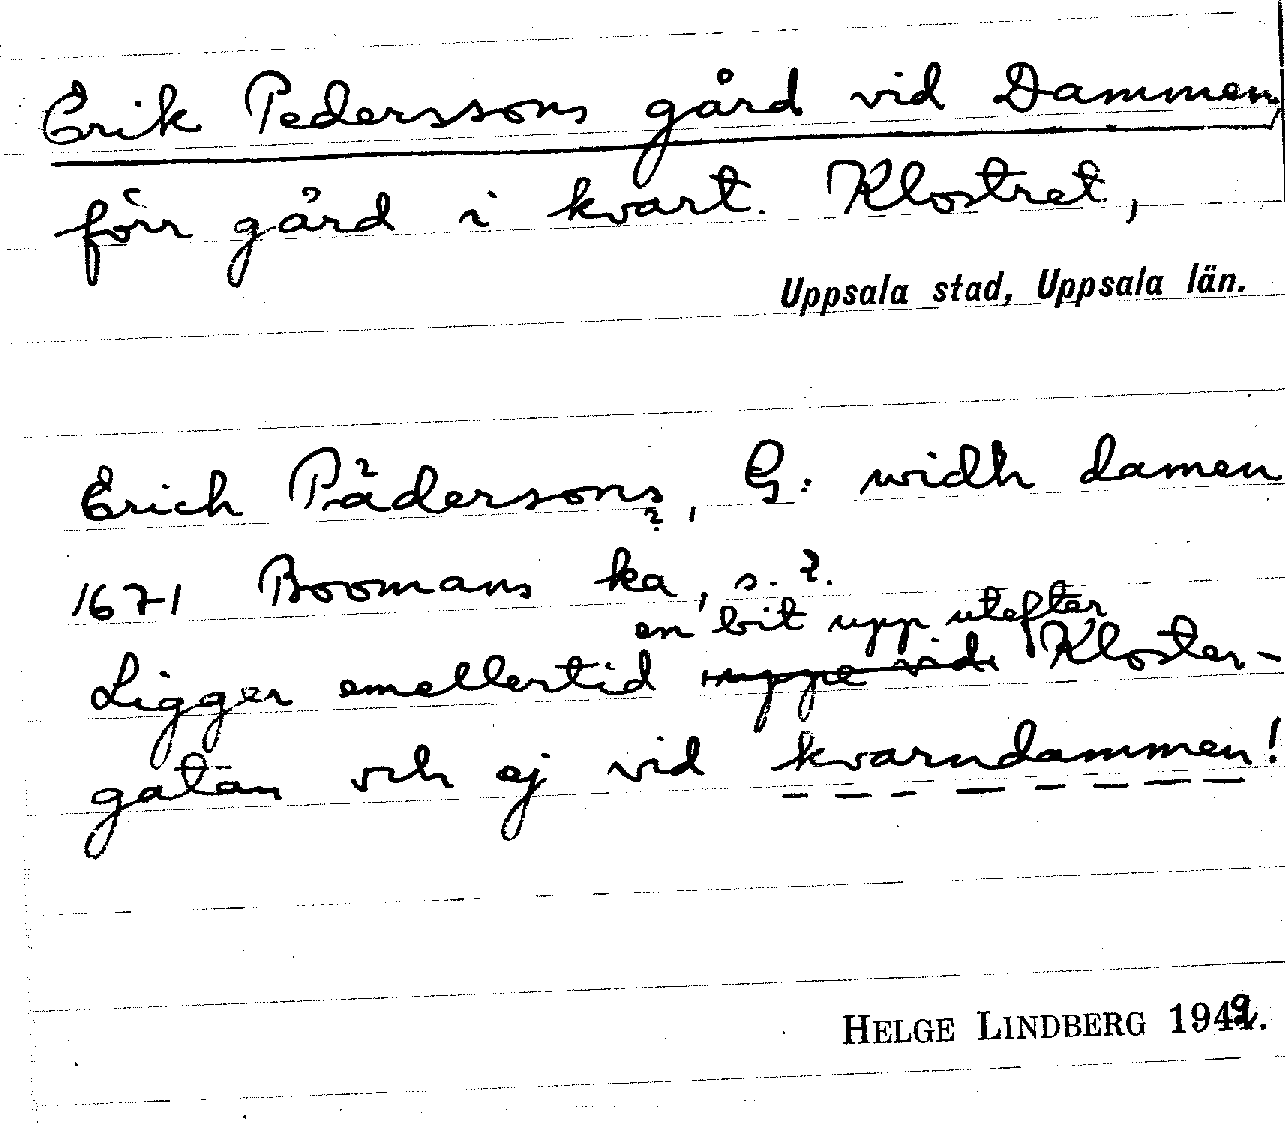 Erik Pederssons gård vid Dammen,
förr gård i kvart. Klostret,
Uppsala stad, Uppsala län.
Erich Pädersons, G: widh damen
1671 Boomans ka, s. 2.
en bit upp utefter
Ligger emellertid uppe vid Kloster-
gatan och ej vid kvarndammen!
HELGE LINDBERG 1949.